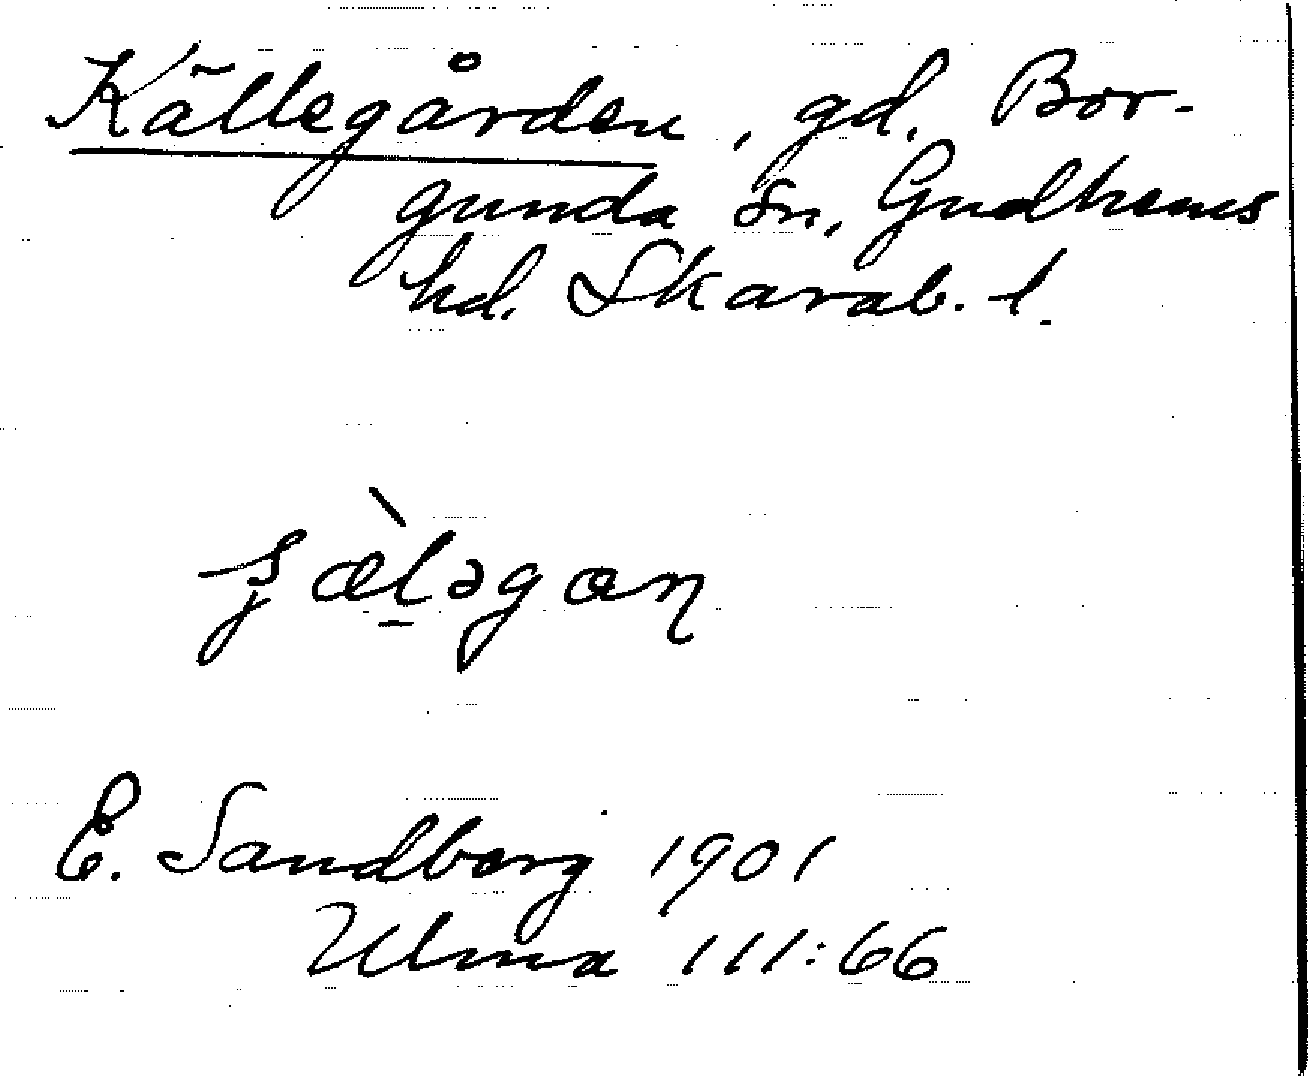 Källegården, gd. Bor-
gunda sn, Gudhems
hd. Skarab. l.
E. Sandberg 1901
Ulma 111:66